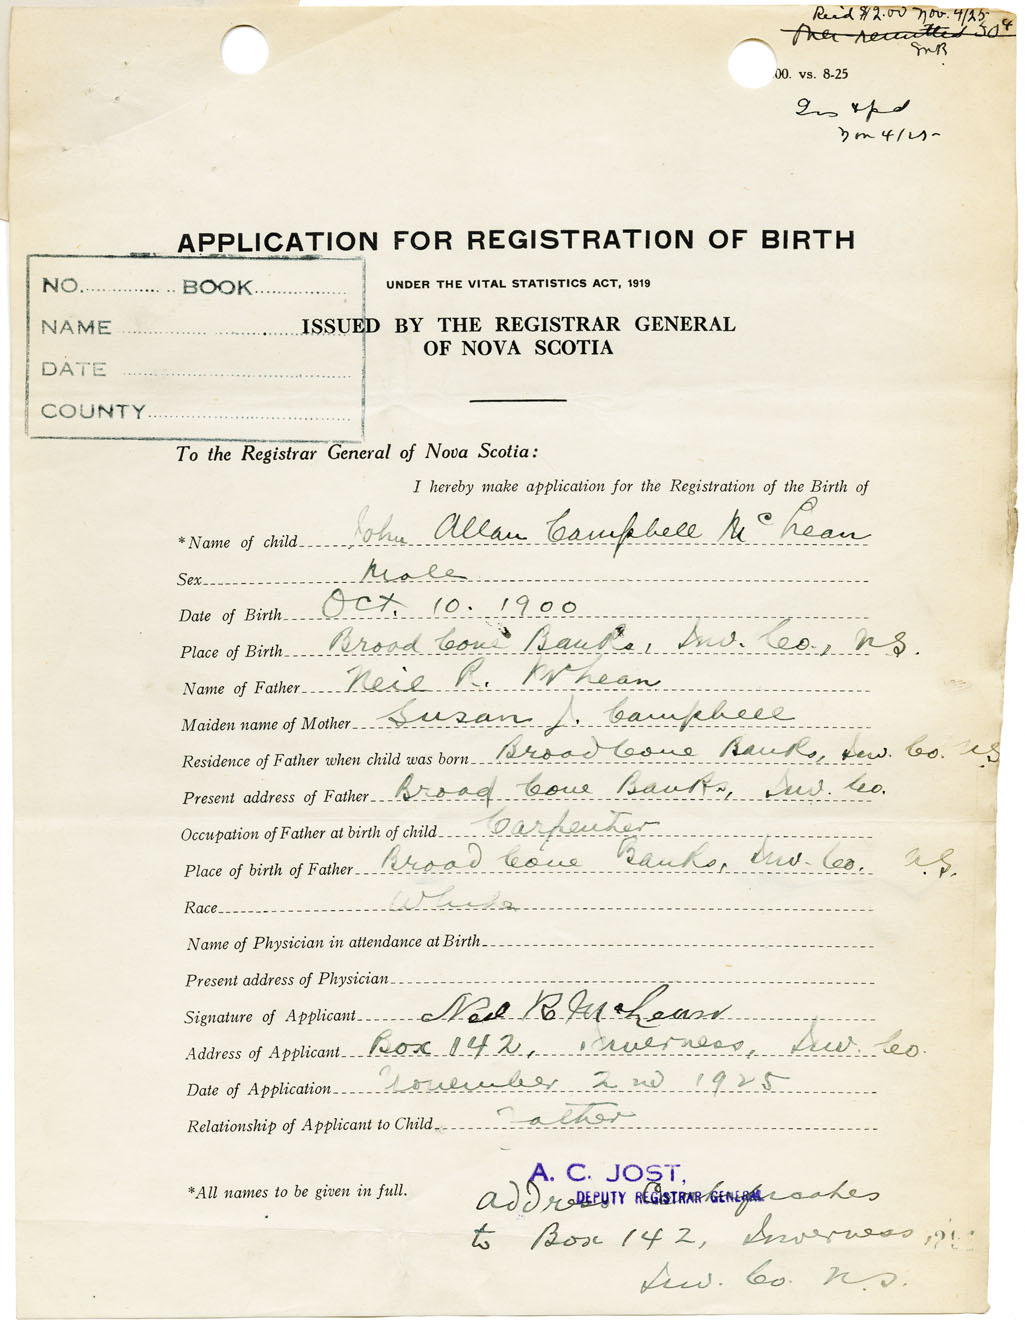 Rec'd $2.00 Nov. 4/25
remitted 50¢
00. vs. 8-25
Nov 4/25
APPLICATION FOR REGISTRATION OF BIRTH
UNDER THE VITAL STATISTICS ACT, 1919
ISSUED BY THE REGISTRAR GENERAL
OF NOVA SCOTIA
NO. BOOK
NAME
DATE
COUNTY
To the Registrar General of Nova Scotia:
I hereby make application for the Registration of the Birth of
*Name of child John Allan Campbell McLean
Sex Male
Date of Birth Oct. 10. 1900
Place of Birth Broad Cove Banks, Inv. Co., N.S.
Name of Father Neil R. McLean
Maiden name of Mother Susan J. Campbell
Residence of Father when child was born Broad Cove Banks, Inv. Co. N.S
Present address of Father Broad Cove Banks, Inv. Co.
Occupation of Father at birth of child Carpenter
Place of birth of Father Broad Cove Banks, Inv. Co. N.S.
Race White
Name of Physician in attendance at Birth
Present address of Physician
Signature of Applicant Neil R McLean
Address of Applicant Box 142, Inverness, Inv. Co.
Date of Application November 2nd 1925
Relationship of Applicant to Child Father
A. C. JOST,
DEPUTY REGISTRAR GENERAL
*All names to be given in full.
Address
to Box 142, Inverness,
Inv. Co. N.S.